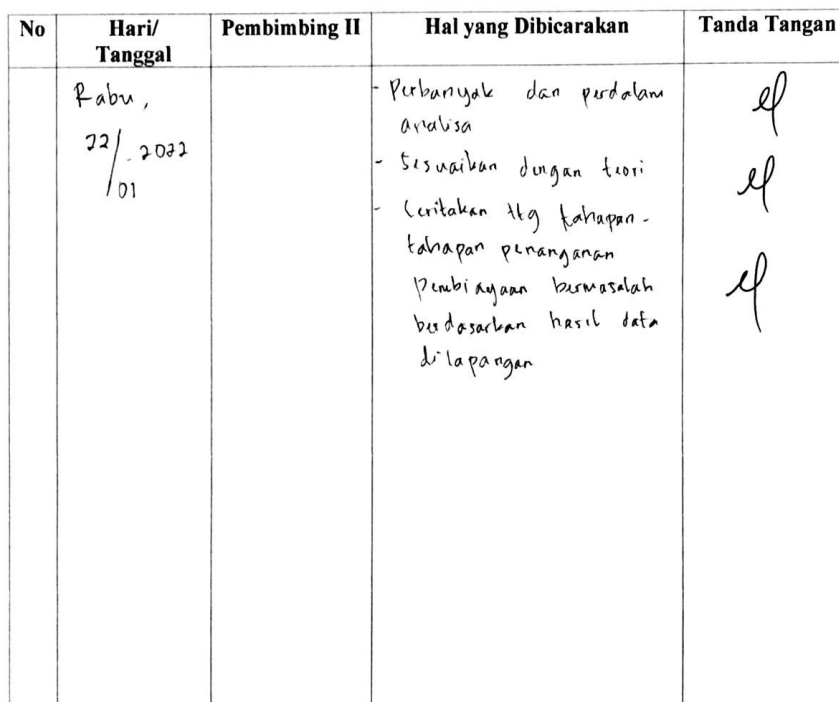 No Hari/ Tanggal Pembimbing II Hal yang Dibicarakan Tanda Tangan
Rabu,
22/01 - 2022
- Perbanyak dan perdalam
analisa
- Sesuaikan dengan teori
- Ceritakan ttg tahapan-
tahapan penanganan
Pembiayaan bermasalah
berdasarkan hasil data
dilapangan